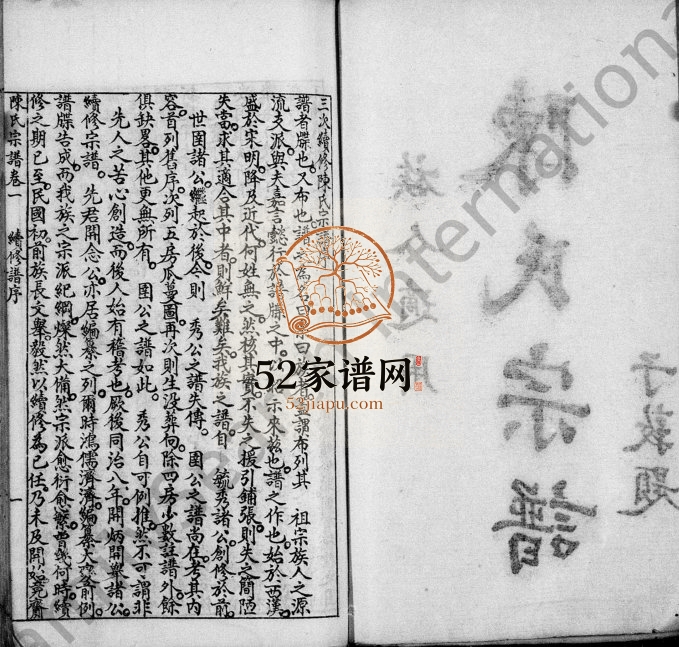 陳氏宗譜
子敦題
三次續修陳氏宗譜序
譜者牒也又布也譜之為 曰 曰 謂布列其 祖宗族人之源
流支派與夫嘉言懿行於譜牒之中以 示來茲也譜之作也始於西漢
盛於宋明降及近代何姓無之然核其實不失之援引鋪張則失之簡陋
失當求其適合其中者則鮮矣難矣我族之譜自 毓秀諸公創修於前
世囿諸公繼起於後今則 秀公之譜失傳 囿公之譜尚在考其內
容首列舊序次列五房瓜蔓圖再次則生没葬向除四房少數註譜外餘
俱缺畧其他更無所有 囿公之譜如此 秀公自可例推然不可謂非
先人之苦心創造而後人始有稽考也厥後同治八年開炳開與諸公
續修宗譜 先君開念公亦居編纂之列爾時鴻儒濟濟編纂大 前例
譜牒告成而我族之宗派紀綱燦然大備然宗派愈衍愈繁曹幾何時續
修之期已至民國初前族長文舉毅然以續修為己任乃未及開始竟齎
陳氏宗譜卷一 續修譜序 一
52家谱网
52jiapu.com